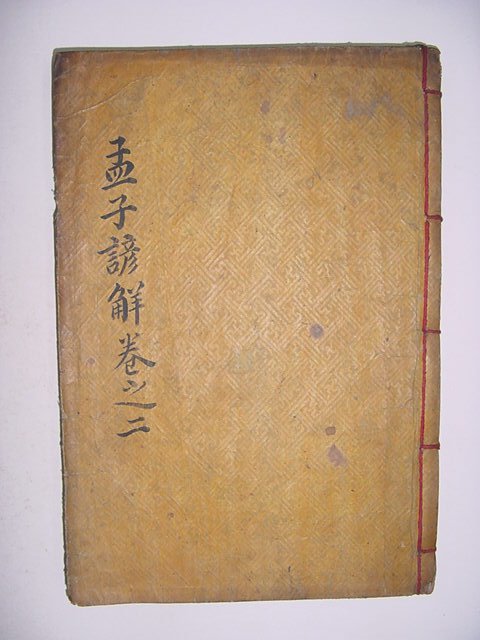 孟子諺觧卷之二